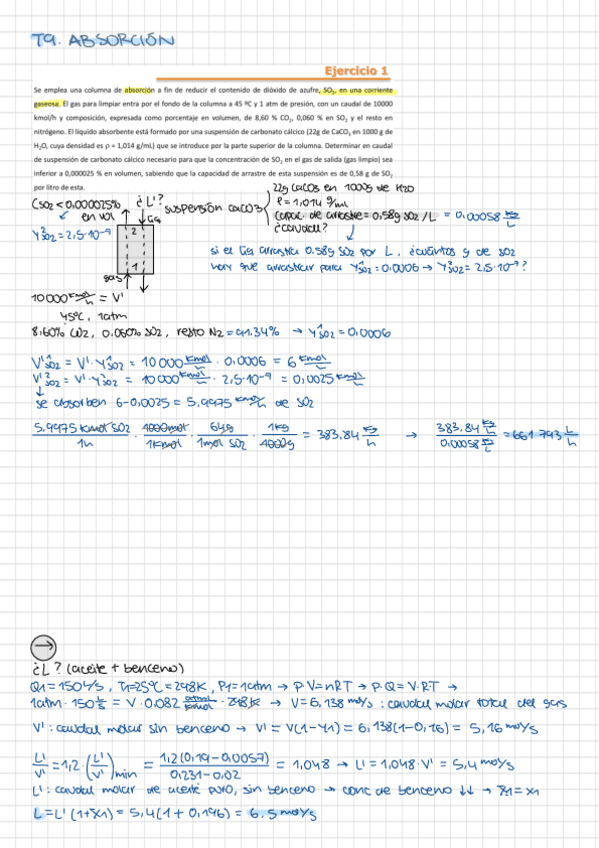 T9. ABSORCIÓN
Ejercicio 1
Se emplea una columna de absorción a fin de reducir el contenido de dióxido de azufre, SO₂, en una corriente
gaseosa. El gas para limpiar entra por el fondo de la columna a 45 ºC y 1 atm de presión, con un caudal de 10000
kmol/h y composición, expresada como porcentaje en volumen, de 8,60 % CO₂, 0,060 % en SO₂ y el resto en
nitrógeno. El líquido absorbente está formado por una suspensión de carbonato cálcico (22g de CaCO₃ en 1000 g de
H₂O, cuya densidad es ρ = 1,014 g/mL) que se introduce por la parte superior de la columna. Determinar en caudal
de suspensión de carbonato cálcico necesario para que la concentración de SO₂ en el gas de salida (gas limpio) sea
inferior a 0,000025 % en volumen, sabiendo que la capacidad de arrastre de esta suspensión es de 0,58 g de SO₂
por litro de esta.
CSO2 < 0.000025% en vol
¿L'?
liq
suspensión CaCO3
22g CaCO3 en 1000g de H2O
ρ = 1,014 g/ml
capac. de arrastre = 0,58g SO2/L = 0,00058 kg/L
¿caudal?
Y²SO2 = 2,5·10⁻⁷
2
1
gas
si el liq arrastra 0.58g SO2 por L, ¿cuántos g de SO2
hay que arrastrar para Y¹SO2 = 0.0006 → Y²SO2 = 2,5·10⁻⁷?
10000 kmol/h = V'
45ºC, 1atm
8.60% CO2, 0.060% SO2, resto N2 = 91.34% → Y¹SO2 = 0.0006
V'¹SO2 = V'·Y¹SO2 = 10 000 kmol/h · 0.0006 = 6 kmol/h
V'²SO2 = V'·Y²SO2 = 10000 kmol/h · 2,5·10⁻⁷ = 0,0025 kmol/h
↓
se absorben 6-0,0025 = 5,9975 kmol/h de SO2
5,9975 kmol SO2/1h · 1000mol/1kmol · 64g/1mol SO2 · 1kg/1000g = 383,84 kg/h → 383,84 kg/h / 0,00058 kg/L = 661 793 L/h
→
¿L? (aceite + benceno)
Q1 = 150 L/s, T1=25ºC = 298K, P1=1atm → P·V=nRT → P·Q = V·R·T →
1atm · 150 L/s = V · 0.082 atm·L/K·mol · 298K → V = 6,138 mol/s : caudal molar total del gas
V' : caudal molar sin benceno → V' = V(1-Y1) = 6,138(1-0,16) = 5,16 mol/s
L'/V' = 1,2·(L'/V')min = 1,2(0,19-0,0057)/0,231-0,02 = 1,048 → L' = 1,048·V' = 5,4 mol/s
L' : caudal molar de aceite puro, sin benceno → conc de benceno ↓↓ → X1 = x1
L = L'(1+X1) = 5,4(1+0,196) = 6,5 mol/s